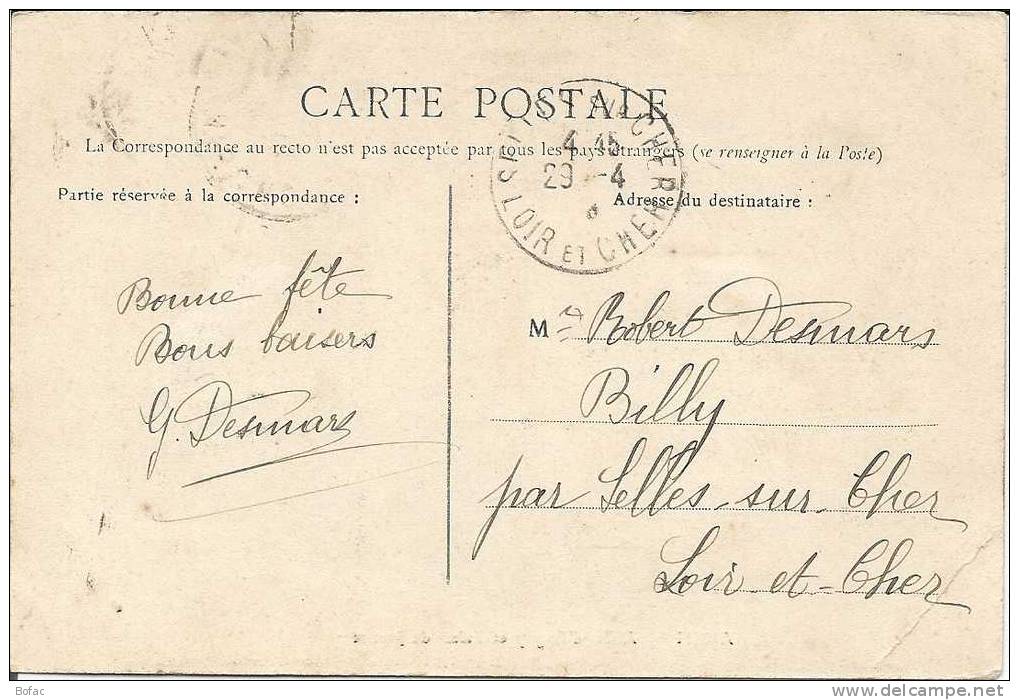 CARTE POSTALE
La Correspondance au recto n'est pas acceptée par tous les pays étrangers (se renseigner à la Poste)
Partie réservée à la correspondance :
Adresse du destinataire :
4 45
29 -4
LOIR ET CHER
Bonne fête
Bons baisers
G. Desmars
M Robert Desmars
Billy
par Selles-sur-Cher
Loir-et-Cher
Bofac
www.delcampe.net